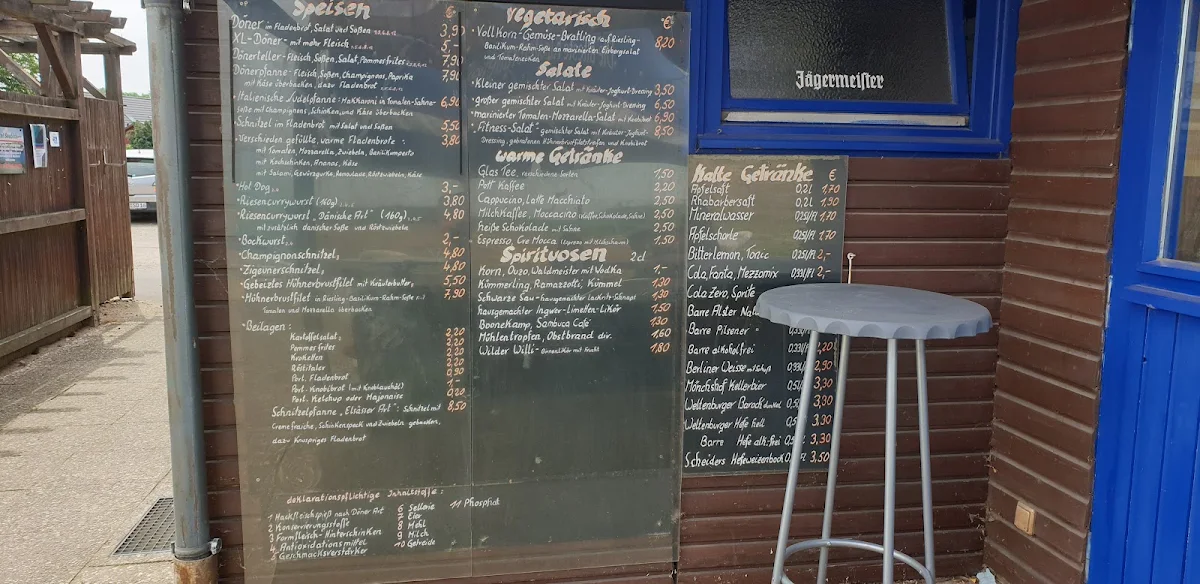 Speisen €
Döner in Fladenbrot, Salat und Soßen 3,9
XL-Döner - mit mehr Fleisch 5,-
Dönerteller - Fleisch, Soßen, Salat, Pommes frites 7,90
Dönerpfanne - Fleisch, Soßen, Champignons, Paprika 7,90
mit Käse überbacken, dazu Fladenbrot
Italienische Nudelpfanne: Makkaroni in Tomaten-Sahne- 6,90
soße mit Champignons, Schinken, und Käse überbacken
Schnitzel im Fladenbrot mit Salat und Soßen 5,50
Verschieden gefüllte, warme Fladenbrote: 3,80
mit Tomaten, Mozzarella, Zwiebeln,
mit Kochschinken, Ananas, Käse
mit Salami, Gewürzgurke, Remoulade, Röstzwiebeln, Käse
Hot Dog 3,-
Riesencurrywurst (160g) 3,80
Riesencurrywurst „Dänische Art" (160g) 4,80
mit zusätzlich dänischer Soße und Röstzwiebeln
Bockwurst 2,-
Champignonschnitzel 4,80
Zigeunerschnitzel 4,80
Gebeiztes Hühnerbrustfilet mit Kräuterbutter 5,50
Hühnerbrustfilet in Riesling-Basilikum-Rahm-Soße 7,90
Tomaten und Mozzarella überbacken
Beilagen:
Kartoffelsalat 2,20
Pommes frites 2,20
Kroketten 2,20
Röstitaler 2,20
Port. Fladenbrot 0,90
Port. Knobibrot (mit Knoblauchöl) 1,-
Port. Ketchup oder Majonaise 0,20
Schnitzelpfanne „Elsässer Art": Schnitzel mit 8,50
Creme fraiche, Schinkenspeck und Zwiebeln gebacken,
dazu knuspriges Fladenbrot
deklarationspflichtige Inhaltstoffe:
1 Hackfleischspieß nach Döner Art 6 Sellerie 11 Phosphat
2 Konservierungsstoffe 7 Eier
3 Formfleisch-Hinterschinken 8 Mehl
4 Antioxidationsmittel 9 Milch
5 Geschmacksverstärker 10 Getreide
Vegetarisch €
Vollkorn-Gemüse-Bratling auf Riesling- 8,20
Basilikum-Rahm-Soße an mariniertem Eisbergsalat
und Tomatenecken
Salate
Kleiner gemischter Salat mit Kräuter-Joghurt-Dressing 3,50
großer gemischter Salat mit Kräuter-Joghurt-Dressing 6,50
marinierter Tomaten-Mozzarella-Salat mit Knobibrot 6,90
„Fitness-Salat" gemischter Salat mit Kräuter-Joghurt- 8,50
Dressing, gebratenen Hühnerbrustfiletstreifen und Knobibrot
Warme Getränke
Glas Tee, verschiedene Sorten 1,50
Pott Kaffee 2,20
Cappucino, Latte Macchiato 2,50
Milchkaffee, Moccacino (Kaffee, Schokolade, Sahne) 2,50
Heiße Schokolade mit Sahne 2,50
Espresso, Cre Mocca 1,50
Spirituosen 2cl
Korn, Ouzo, Waldmeister mit Wodka 1,-
Kümmerling, Ramazzotti, Kümmel 1,30
Schwarze Sau - hausgemachter Lakritz-Schnaps 1,30
hausgemachter Ingwer-Limetten-Likör 1,50
Boonekamp, Sambuca Café 1,30
Mühlentropfen, Obstbrand div. 1,60
Wilder Willi - 1,80
Jägermeister
Kalte Getränke €
Apfelsaft 0,2l 1,70
Rhabarbersaft 0,2l 1,90
Mineralwasser 0,25l/Fl 1,70
Apfelschorle 0,25l/Fl 1,70
Bitterlemon, Tonic 0,25l/Fl 2,-
Cola, Fanta, Mezzomix 0,33l/Fl 2,-
Cola Zero, Sprite
Barre Alster
Barre Pilsener
Barre alkoholfrei 0,33l/Fl 2,20
Berliner Weisse mit Schuß 0,33l/Fl 2,90
Mönchshof Kellerbier 0,5l/Fl 3,30
Weltenburger Barock dunkel 3,30
Weltenburger Hefe hell 3,30
Barre Hefe alk.frei 3,30
Scheiders Hefeweizenbock 3,50